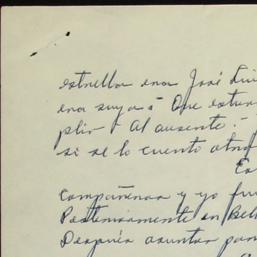 estrella era José Lui
era suya á Que estu
plir - Al ausente! -
si se lo cuento
Es
Compañeras y yo fu
Posteriormente en Bel
Después asuntos par